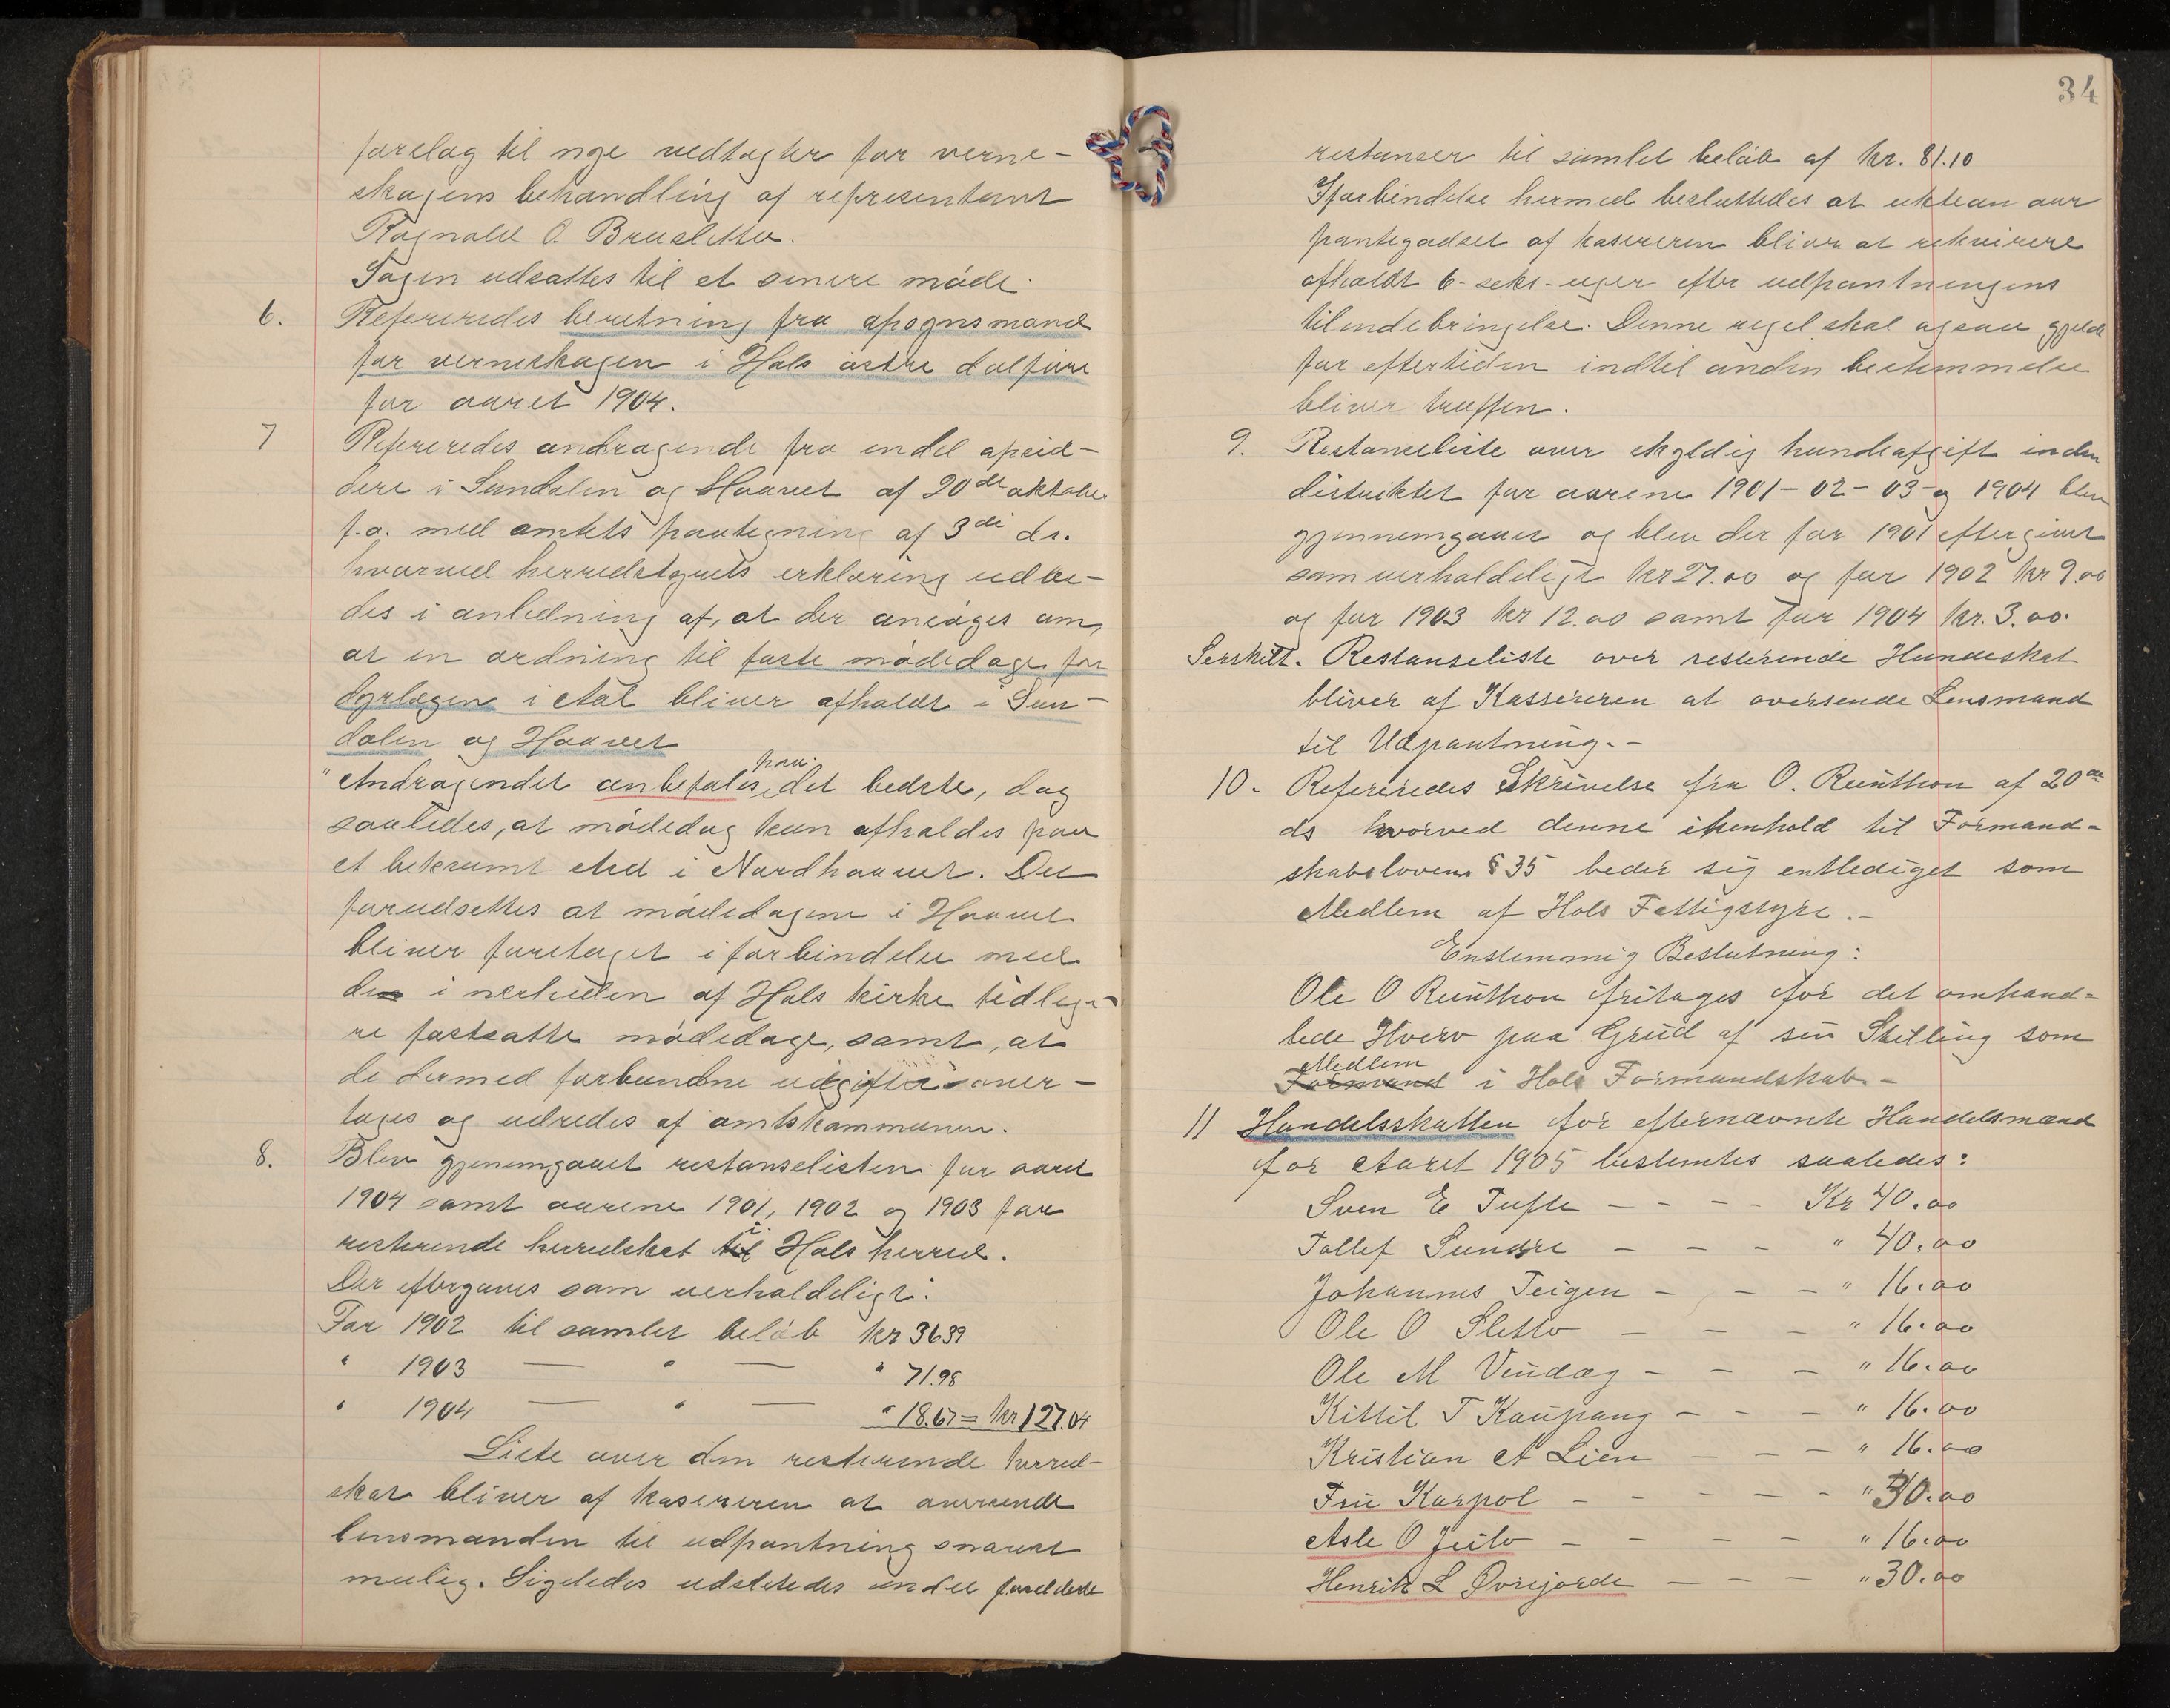 forslag til nye vedtægter for verne-
skogens behandling af representant
Ragnald O. Brusletto.
Sagen udsattes til et senere møde.
6. Refereredes beretning fra opsynsmand
for verneskogen i Hols østre dalføre
for aaret 1904.
7 Refereredes andragende fra endel opsid-
dere i Sundalen og Hovet af 20de oktober
f.a. med amtets paategning af 3di ds.
hvorved herredstyrets erklæring udbe-
des i anledning af, at der ansøges om,
at en ordning til faste mødedage for
dyrlægen i Aal bliver afholdt i Sun-
dalen og Hovet
"Andragendet anbefales paa det bedste, dog
saaledes, at mødedag kun afholdes paa
et bekvamt sted i Nordhovet. Det
forudsettes at mødedagene i Hovet
bliver foretaget i forbindelse med
den i nerheden af Hols kirke tidlige-
re fastsatte mødedage, samt, at
de dermed forbundne udgifter over-
tages og udredes af amtskommunen.
8. Blev gjenemgaaet restanselisten for aaret
1904 samt aarene 1901, 1902 og 1903 for
resterende herredskat til i Hols herred.
Der eftergaves som uerholdeligt:
For 1902 til samlet beløb kr 36 39
" 1903 — " — " 71.98
" 1904 — " — " 18.67 = kr 127.04
Liste over den resterende herred-
skat bliver af kasereren at oversende
lensmanden til udpantning snarest
mulig. Ligeledes udslettedes endel foreldede
34
restanser til samlet beløb af kr. 81.10
I forbindelse hermed besluttedes at auktion over
pantegodset af kasereren bliver at rekvirere
afholdt 6-seks-uger efter udpantningens
tilendebringelse. Denne regel skal ogsaa gjelde
for eftertiden indtil anden bestemmelse
bliver truffen.
9. Restanseliste over skyldig hundeafgift inden
distriktet for aarene 1901-02-03 og 1904 blev
gjennemgaaet og blev der for 1901 eftergivet
som uerholdeligt kr 27.00 og for 1902 kr 9.00
og for 1903 kr 12.00 samt for 1904 kr. 3.00.
Serskilt. Restanseliste over resterende Hundeskat
bliver af Kassereren at oversende Lensmand
til Udpantning.-
10. Refereredes Skrivelse fra O. Reinthon af 20de
ds hvorved denne ihenhold til Formand-
skabslovens § 35 beder sig entlediget som
Medlem af Hols Fattigstyre.-
Enstemmig Beslutning:
Ole O Reinthon fritages for det omhand-
lede Hverv paa Grund af sin Stilling som
Formand Medlem i Hols Formandskab.-
11 Handelsskatten for efternævnte Handelsmænd
for Aaret 1905 bestemtes saaledes:
Sven E Tufte - - - - Kr 40.00
Tollef Sundre - - - " 40.00
Johannes Teigen - - - " 16.00
Ole O Sletto - - - " 16.00
Ole M Vindæg - - - " 16.00
Kittil T Kaupang - - - " 16.00
Kristian A Lien - - - " 16.00
Fru Karpol - - - - - " 30.00
Asle O Juto - - - - " 16.00
Henrik L Øvrejorde - - - " 30.00